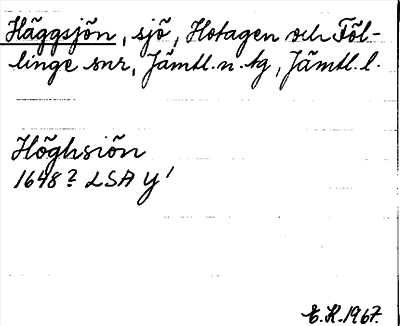 Häggsjön, sjö, Hotagen och Föl-
linge snr, Jämtl. n. tg, Jämtl. l.
Höghsiön
1648? LSA Y'
E.H. 1967.